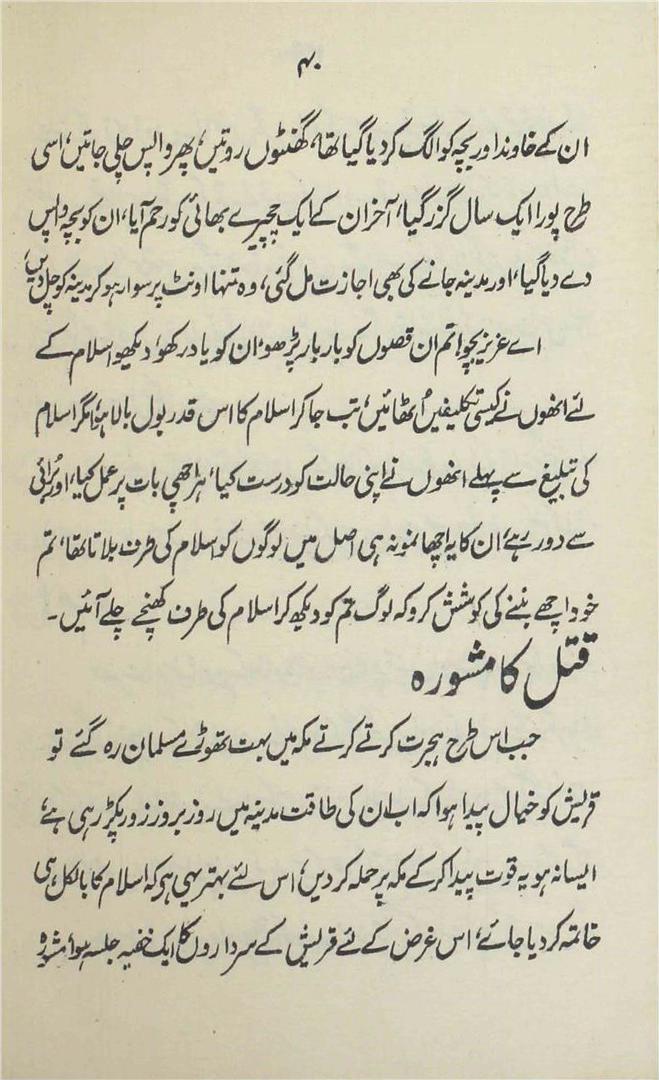 ۴۰
ان کے خاوند اور بچہ کو الگ کر دیا گیا تھا، گھنٹوں روتیں، پھر واپس چلی جاتیں، اسی
طرح پورا ایک سال گزر گیا، آخر ان کے ایک چچیرے بھائی کو رحم آیا، ان کو بچہ واپس
دے دیا گیا، اور مدینہ جانے کی بھی اجازت مل گئی، وہ تنہا اونٹ پر سوار ہو کر مدینہ کو چل دیں،
اے عزیز بچو! تم ان قصوں کو بار بار پڑھو، ان کو یاد رکھو، دیکھو اسلام کے
لئے انھوں نے کیسی تکلیفیں اُٹھائیں، تب جا کر اسلام کا اس قدر بول بالا ہوا، مگر اسلام
کی تبلیغ سے پہلے انھوں نے اپنی حالت کو درست کیا، ہر اچھی بات پر عمل کیا، اور بُرائی
سے دور رہے، ان کا یہ اچھا نمونہ ہی اصل میں لوگوں کو اسلام کی طرف بلاتا تھا، تم
خود اچھے بننے کی کوشش کرو کہ لوگ تم کو دیکھ کر اسلام کی طرف کھنچے چلے آئیں۔
قتل کا مشورہ
جب اس طرح ہجرت کرتے کرتے مکہ میں بہت تھوڑے مسلمان رہ گئے تو
قریش کو خیال پیدا ہوا کہ اب ان کی طاقت مدینہ میں روز بروز زور پکڑ رہی ہے،
ایسا نہ ہو یہ قوت پیدا کر کے مکہ پر حملہ کر دیں، اس لئے بہتر یہی ہو کہ اسلام کا بالکل ہی
خاتمہ کر دیا جائے، اس غرض کے لئے قریش کے سرداروں کا ایک خفیہ جلسہ ہوا، مشورہ